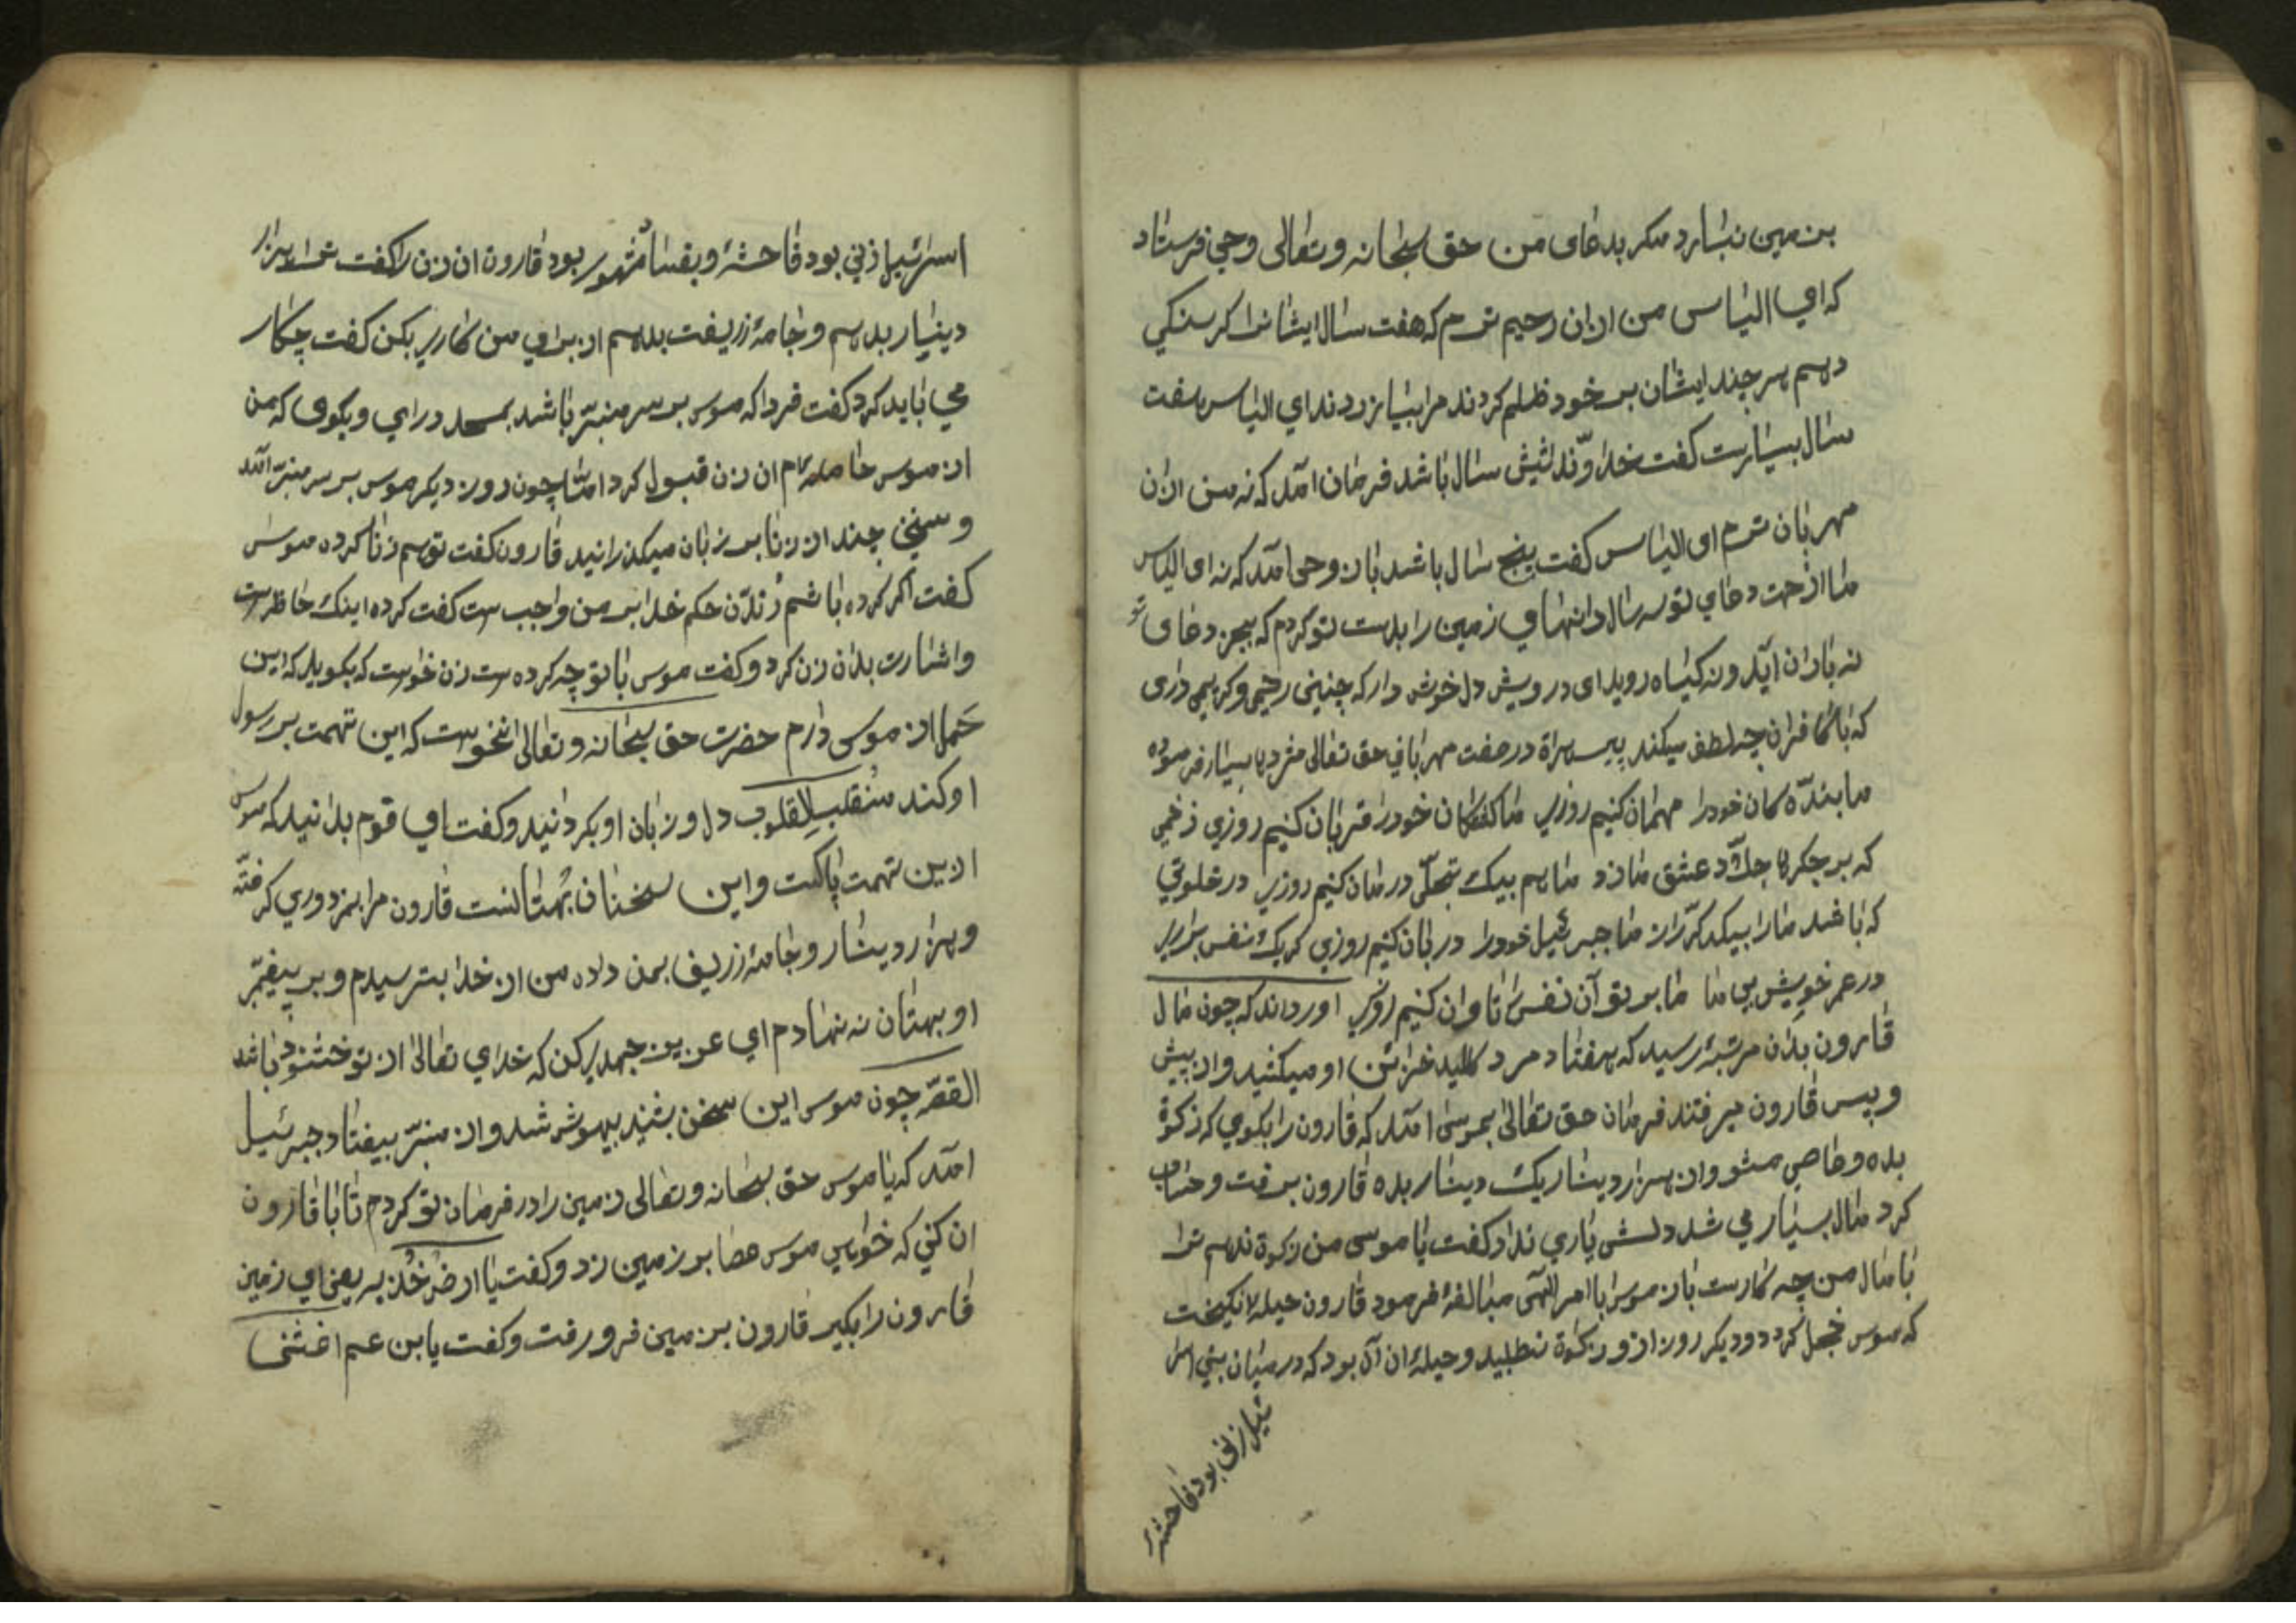 بزمین نبارد مکر بدعای من حق سبحانه وتعالی وحی فرستاد
که ای الیاس من ازان رحیم ترم که هفت سال ایشانرا کرسنکی
دهم هرچند ایشان بر خود ظلم کردند مرا بیازردند ای الیاس هفت
سال بسیارست کفت خداوندا شش سال باشد فرمان آمد که نه من ازان
مهربان ترم ای الیاس کفت پنج سال باشد باز وحی آمد که نه ای الیاس
ما از جهت دعای تو سه سال دانهای زمین را بدست تو کردم که بجز دعای تو
نه باران آید و نه کیاه روید ای درویش دل خوش دار که چنینی رحیمی وکریمی داری
که با کافران چه لطف میکند در صفت مهربانی حق تعالی بسیار فرموده
ما بنده کان خودرا مهمان کنیم روزی ما خودرا قربان کنیم روزی زخمی
که بر جکر عشق ما زد ما هم بیک تجلّی درمان کنیم روزی در خلوتی
که باشد مارا بیکدکر راز ما جبرئیل خودرا دربان کنیم روزی کر یک نفس براری
در عمر خویش بی ما ما بر تو آن نفس را تاوان کنیم روزی اورداند که چون مال
قارون بدان مرتبۀ رسید که هفتاد مرد کلید خزائن او میکشید واز پیش
و پس قارون میرفتند فرمان حق تعالی بموسی آمد که قارون را بکوی که زکوة
بده وعاصی مشو واز هزار دینار یک دینار بده قارون برفت وحساب
کرد مال بسیار می شد دلش یاری نداد کفت یا موسی من زکوة ندهم ترا
با مال من چه کارست باز موسی با امر الهی مبالغۀ فرمود قارون حیله انکیخت
که موسی خجل کردد و دیکر روز ازو زکوة نطلبد وحیلۀ ان آن بود که در میان بنی اسرا
ئیل زنی بود فاحشۀ
اسرائیل زنی بود فاحشۀ و بفساد مشهور بود قارون ان زن را کفت ترا هزار
دینار بدهم و جامۀ زریفت بدهم از برای من کاری بکن کفت چکار
می باید کرد کفت فردا که موسی بر سر منبر باشد بمسجد درای و بکوی که من
از موسی حامله ام ان زن قبول کرد امّا چون روز دیکر موسی بر سر منبر آمد
و سخنی چند از زنا بر زبان میکذرانید قارون کفت تو هم زنا کرده موسی
کفت اکر کرده باشم زدن حکم خدا بر من واجب ست کفت کرده اینک حاظرست
واشارت بدان زن کرد و کفت موسی با تو چه کرده ست زن خواست که بکوید که این
حمل از موسی دارم حضرت حق سبحانه وتعالی نخواست که این تهمت بر رسول
او کند منقلب القلوب دل و زبان او بکردانید و کفت ای قوم بدانید که موسی
ازین تهمت پاکست و این سخنان بهتانست قارون مرا بمزدوری کرفته
و هزار دینار و جامۀ زریف بمن داده من از خدا بترسیدم و بر پیغمبر
او بهتان نه نهادم ای عزیز جهدی کن که خدای تعالی از تو خشنود باشد
القصّه چون موسی این سخن بشنید بیهوش شد واز منبر بیفتاد جبرئیل
آمد که یا موسی حق سبحانه وتعالی زمین را در فرمان تو کردم تا با قارون
ان کنی که خواهی موسی عصا بر زمین زد و کفت یا ارض خذیه یعنی ای زمین
قارون را بکیر قارون بزمین فرو رفت و کفت یا بن عم اغثنی